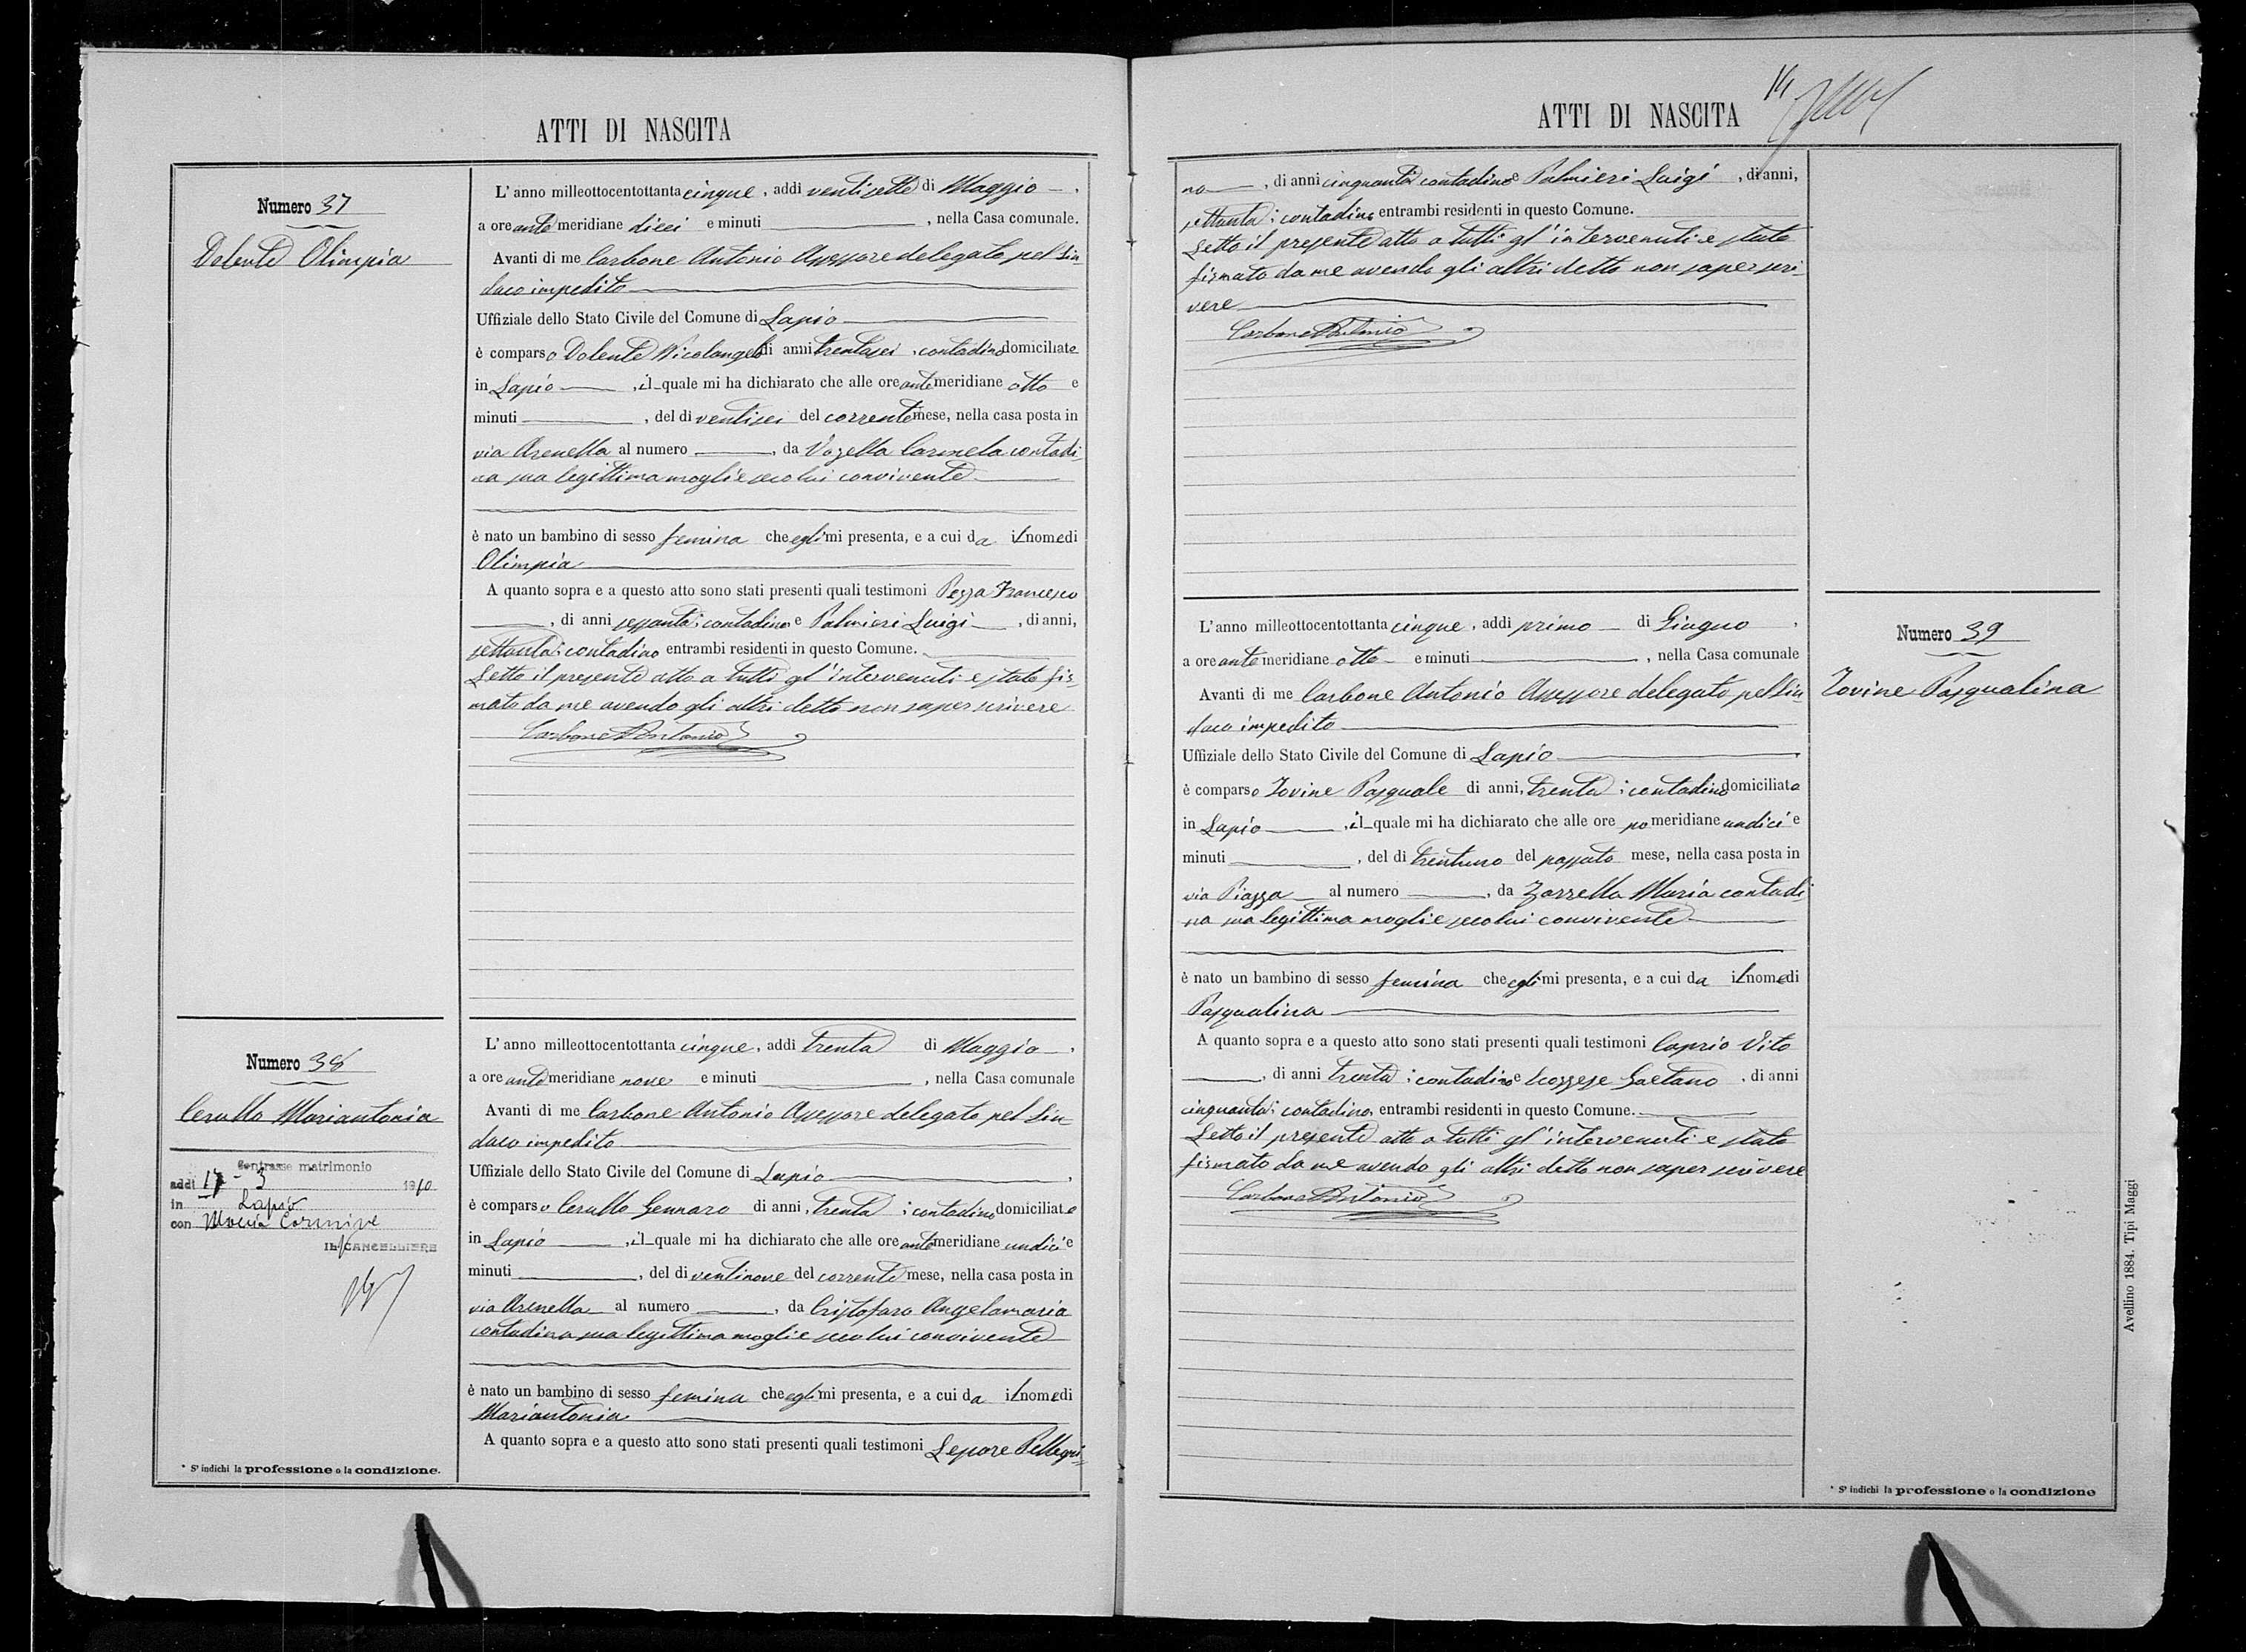 ATTI DI NASCITA
Numero 37
Dolente Olimpia
L'anno milleottocentottanta cinque, addi ventisette di Maggio
a ore ante meridiane dieci e minuti , nella Casa comunale.
Avanti di me Carbone Antonio Assessore delegato pel Sin
daco impedito
Uffiziale dello Stato Civile del Comune di Lapio
è comparso Dolente Nicolangelo di anni trentasei, contadino domiciliato
in Lapio , il quale mi ha dichiarato che alle ore ante meridiane otto e
minuti , del di ventisei del corrente mese, nella casa posta in
via Arenella al numero , da Vozella Carmela contadi-
na sua legittima moglie seco lui convivente
è nato un bambino di sesso femina che egli mi presenta, e a cui da il nome di
Olimpia
A quanto sopra e a questo atto sono stati presenti quali testimoni Pezza Francesco
, di anni sessanta, contadino e Palmieri Luigi , di anni,
settanta, contadino entrambi residenti in questo Comune.
Letto il presente atto a tutti gl'intervenuti e stato fir-
mato da me avendo gli altri detto non saper scrivere
Carbone Antonio
Numero 38
Cerullo Mariantonia
Contrasse matrimonio
addi 17 - 3 1910
in Lapio
con
IL CANCELLIERE
L'anno milleottocentottanta cinque, addi trenta di Maggio ,
a ore ante meridiane nove e minuti , nella Casa comunale
Avanti di me Carbone Antonio Assessore delegato pel Sin
daco impedito
Uffiziale dello Stato Civile del Comune di Lapio ,
è comparso Cerullo Gennaro di anni, trenta ; contadino domiciliato
in Lapio , il quale mi ha dichiarato che alle ore ante meridiane undici e
minuti , del di ventinove del corrente mese, nella casa posta in
via Arenella al numero , da Cristofaro Angelamaria
contadina sua legittima moglie seco lui convivente
è nato un bambino di sesso femina che egli mi presenta, e a cui da il nome di
Mariantonia
A quanto sopra e a questo atto sono stati presenti quali testimoni Lepore Pellegri-
* S'indichi la professione o la condizione.
ATTI DI NASCITA 14
no , di anni cinquanta contadino e Palmieri Luigi , di anni,
settanta; contadino entrambi residenti in questo Comune.
Letto il presente atto a tutti gl'intervenuti e stato
firmato da me avendo gli altri detto non saper scri-
vere
Carbone Antonio
L'anno milleottocentottanta cinque, addi primo di Giugno ,
a ore ante meridiane otto e minuti , nella Casa comunale
Avanti di me Carbone Antonio Assessore delegato pel Sin-
daco impedito
Uffiziale dello Stato Civile del Comune di Lapio
è comparso Iovine Pasquale di anni, trenta ; contadino domiciliato
in Lapio , il quale mi ha dichiarato che alle ore po meridiane undici e
minuti , del di trentuno del passato mese, nella casa posta in
via Piazza al numero , da Zarrella Maria contadi-
na sua legittima moglie seco lui convivente
è nato un bambino di sesso femina che egli mi presenta, e a cui da il nome di
Pasqualina
A quanto sopra e a questo atto sono stati presenti quali testimoni Caprio Vito
, di anni trenta ; contadino e Scozzese Gaetano , di anni
cinquanta; contadino, entrambi residenti in questo Comune.
Letto il presente atto a tutti gl'intervenuti e stato
firmato da me avendo gli altri detto non saper scrivere
Carbone Antonio
Numero 39
Iovine Pasqualina
* S'indichi la professione o la condizione
Avellino 1884. Tipi Maggi